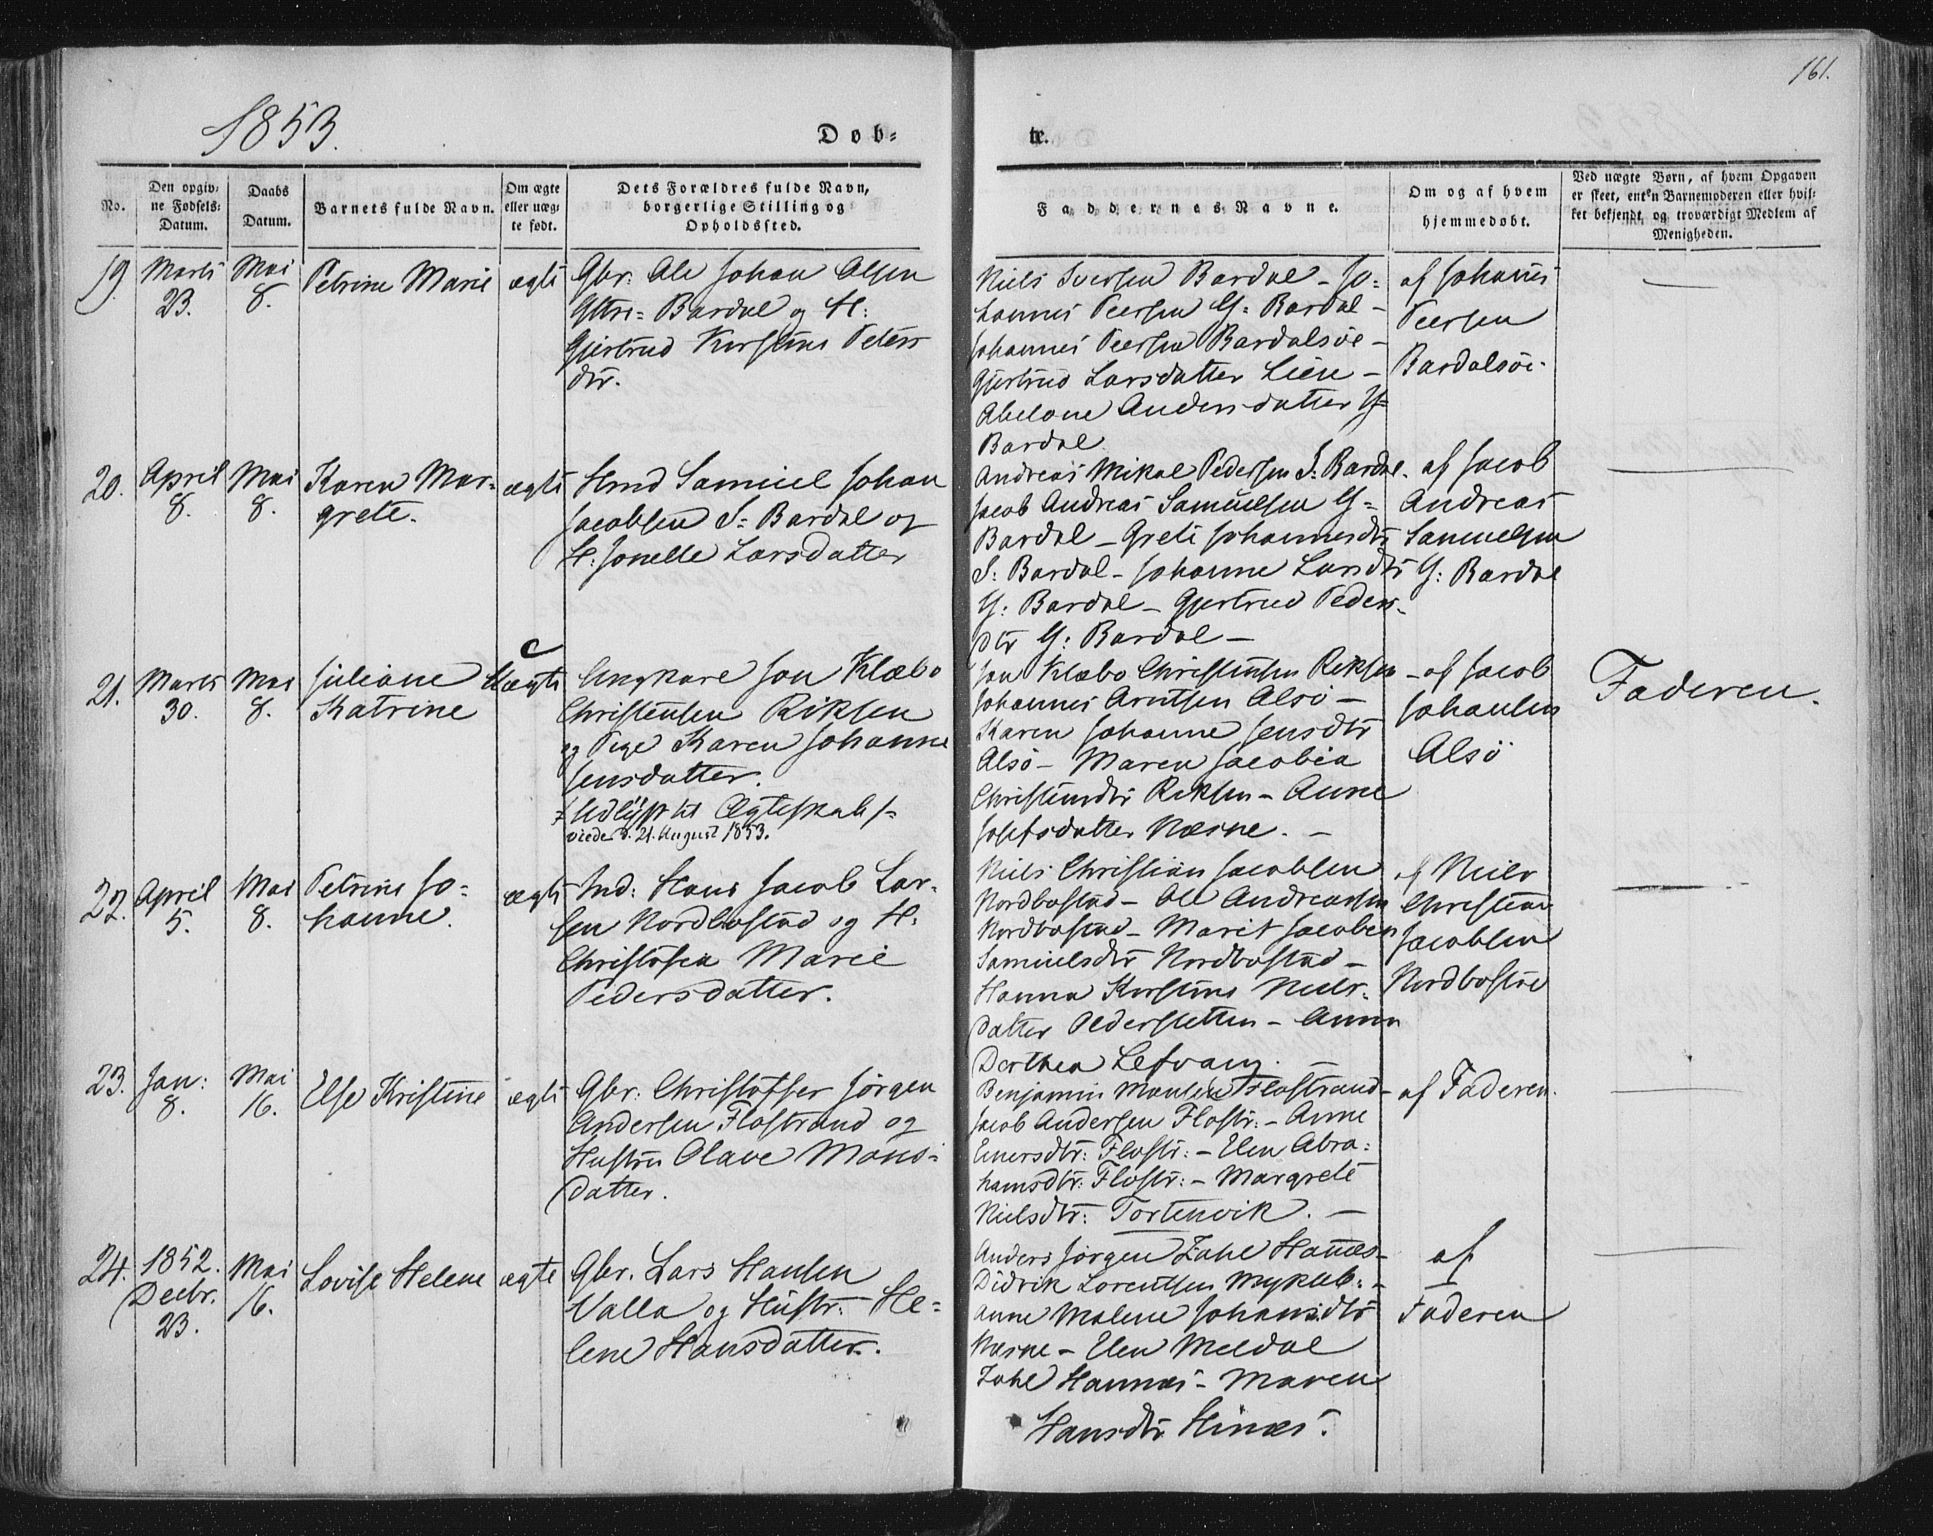 161.
1853.
Døb-
te.
No.
Den opgiv-
ne Fødsels-
Datum.
Daabs
Datum.
Barnets fulde Navn.
Om ægte
eller uæg-
te født.
Dets Forældres fulde Navn,
borgerlige Stilling og
Opholdssted.
Faddernes Navne.
Om og af hvem
hjemmedøbt.
Ved uægte Børn, af hvem Opgaven
er skeet, enten Barnemoderen eller hvil-
ket bekjendt og troværdigt Medlem af
Menigheden.
19.
Marts
23.
Mai
8.
Petrine Marie
ægte
Gbr: Ole Johan Olsen
Yttre- Bardal og H:
Gjertrud Kirstine Peters
dtr.
Niels Iversen Bardal - Jo-
hannes Peersen Y: Bardal -
Johannes Peersen Bardalsøe -
Gjertrud Larsdatter Lien -
Abelone Andersdatter Y-
Bardal
af Johannes
Peersen
Bardalsøe.
20.
April
8.
Mai
8.
Karen Mar-
grete.
ægte
Hmd Samuel Johan
Jacobsen S: Bardal og
H: Jonelle Larsdatter
Andreas Mikal Pedersen S: Bardal.
Jacob Andreas Samuelsen Y-
Bardal - Grete Johannesdtr
S: Bardal - Johanne Larsdtr
Y: Bardal - Gjertrud Peders-
dtr Y: Bardal -
af Jacob
Andreas
Samuelsen
Y: Bardal
21.
Marts
30.
Mai
8.
Juliane
Katrine
Uægte
Ungkarl Jon Klæbo
Christensen Riksen
og Pige Karen Johanne
Jensdatter.
/: Udlyst til Ægteskab /-
viede d. 21. August 1853.
Jon Klæbo Christensen Riksen -
Johannes Arntsen Alsø -
Karen Johanne Jensdtr
Alsø - Maren Jacobia
Christensdtr Riksen - Anne
Josefsdatter Næsne. -
af Jacob
Johansen
Alsø
Faderen.
22.
April
5.
Mai
8.
Petrine Jo-
hanne.
ægte
Ind: Hans Jacob Lar-
sen Nordbostad og H.
Christofea Marie
Pedersdatter.
Niels Christian Jacobsen
Nordbostad - Ole Andreassen
Nordbostad - Marit Jacobea
Samuelsdtr Nordbostad -
Hanna Kirstine Niels-
datter Pedersletten - Anna
Dorthea Lefvang. -
af Niels
Christian
Jacobsen
Nordbostad
23.
Jan:
8.
Mai
16.
Else Kristine
ægte
Gbr: Christoffer Jørgen
Andersen Flostrand og
Hustru Olave Mons-
datter.
Benjamin Monsen Flostrand -
Jacob Andersen Flostr: - Anne
Einersdtr: Flostr: - Elen Abra-
hamsdtr: Flostr: - Margrete
Nielsdtr: Tortenvik. -
af Faderen.
24.
1852.
Decbr.
23.
Mai
16.
Lovise Helene
ægte
Gbr. Lars Hansen
Valla og Hustr: He-
lene Hansdatter.
Anders Jørgen Zahl Hannæs -
Didrik Lorentsen Mykleb: -
Anne Malene Johansdtr
Næsne - Elen Meldal
Zahl Hannæs - Maren
Hansdtr Hinæs.
af
Faderen